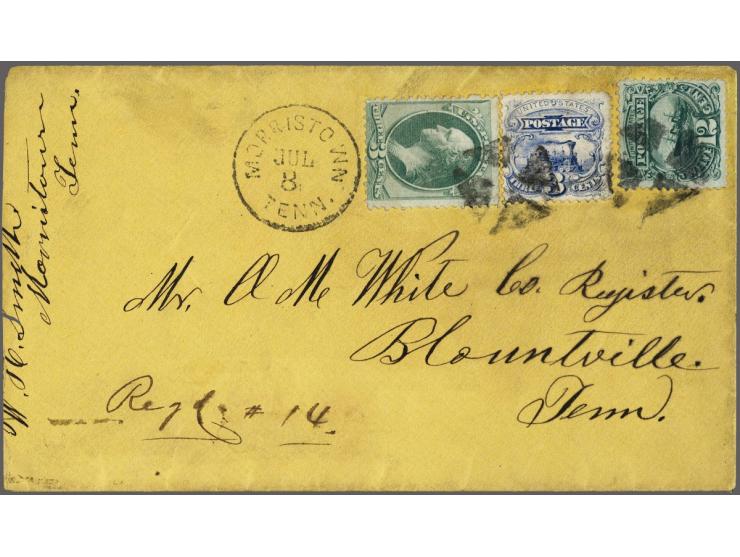 W. H. Smyth
Morristown
Tenn.
MORRISTOWN
JUL
8
TENN.
UNITED STATES
POSTAGE
THREE 3 CENTS
POSTAGE
2
CENTS
Mr. A M White Co. Register.
Blountville.
Tenn.
Regd. # 14